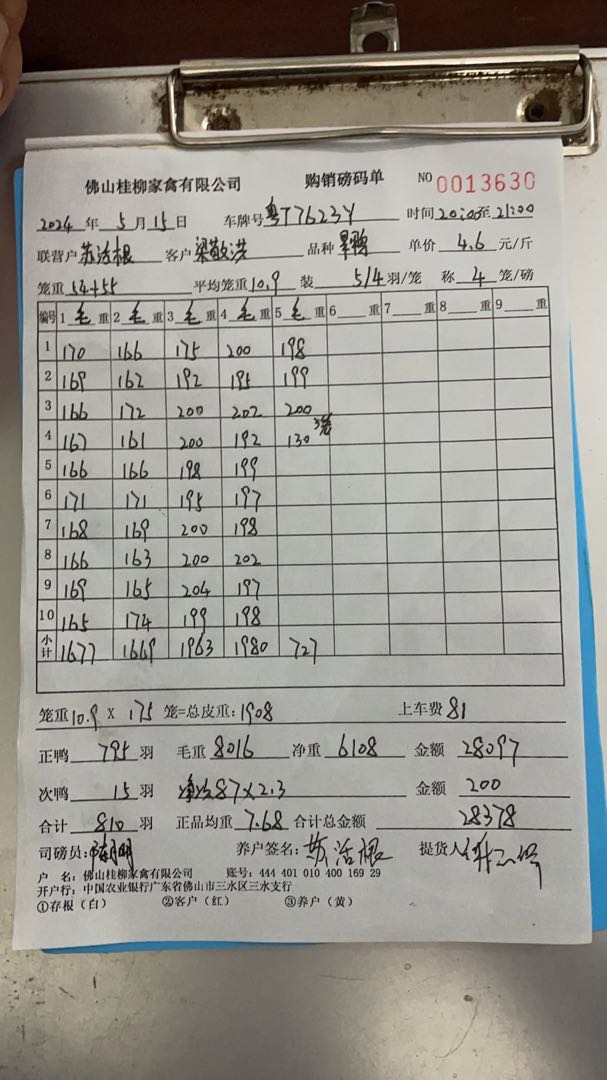 佛山桂柳家禽有限公司 购销磅码单 NO 0013630
2024 年 5 月 15 日 车牌号 粤T7623Y 时间 20:00 至 21:00
联营户 苏活根 客户 梁敬洪 品种 单价 4.6 元/斤
笼重 54+55 平均笼重 10.9 装 5/4 羽/笼 称 4 笼/磅
编号 1 毛 重 2 毛 重 3 毛 重 4 毛 重 5 毛 重 6 重 7 重 8 重 9 重
1 170 166 175 200 198
2 169 162 192 195 199
3 166 172 200 202 200
4 167 161 200 192 130 3笼
5 166 166 198 199
6 171 171 195 197
7 168 169 200 198
8 166 163 200 202
9 169 165 204 197
10 165 174 199 198
小计 1677 1669 1963 1980 727
笼重 10.9 X 175 笼=总皮重: 1908 上车费 81
正鸭 795 羽 毛重 8016 净重 6108 金额 28097
次鸭 15 羽 87×2.3 金额 200
合计 810 羽 正品均重 7.68 合计总金额 28378
司磅员: 养户签名: 苏活根 提货人
户 名: 佛山桂柳家禽有限公司 账号: 444 401 010 400 169 29
开户行: 中国农业银行广东省佛山市三水区三水支行
①存根（白） ②客户（红） ③养户（黄）